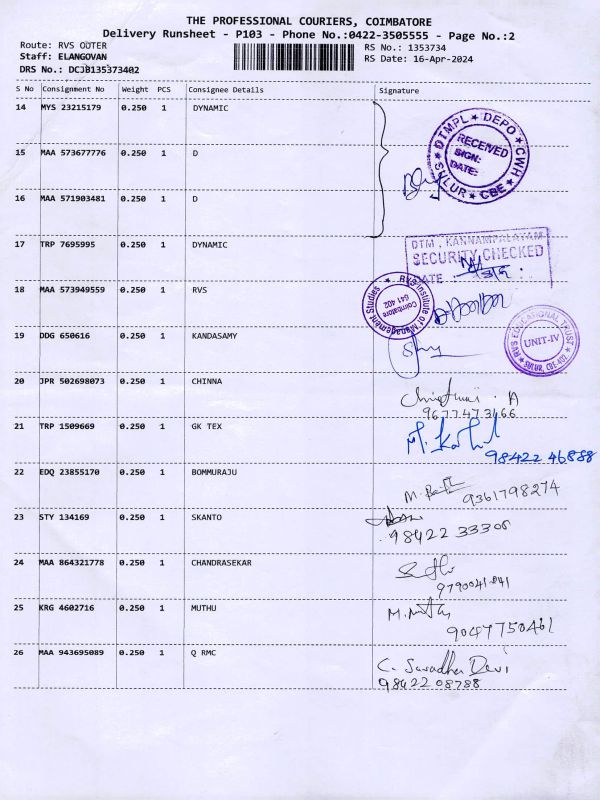 THE PROFESSIONAL COURIERS, COIMBATORE
Delivery Runsheet - P103 - Phone No.:0422-3505555 - Page No.:2
Route: RVS OUTER RS No.: 1353734
Staff: ELANGOVAN RS Date: 16-Apr-2024
DRS No.: DCJB135373402
S No Consignment No Weight PCS Consignee Details Signature
14 MYS 23215179 0.250 1 DYNAMIC
DTMPL ★ DEPO ★ CWH ★ SULUR ★ CBE ★
RECEIVED
SIGN:
DATE:
15 MAA 573677776 0.250 1 D
16 MAA 571903481 0.250 1 D
17 TRP 7695995 0.250 1 DYNAMIC
DTM, KANNAMPALAYAM
SECURITY CHECKED
DATE
18 MAA 573949559 0.250 1 RVS
RVS Institute of Management Studies ★
Coimbatore
641 402
19 DDG 650616 0.250 1 KANDASAMY
RVS EDUCATIONAL TRUST
UNIT-IV
★ SULUR, CBE-402 ★
20 JPR 502698073 0.250 1 CHINNA
21 TRP 1509669 0.250 1 GK TEX
98422 46888
22 EDQ 23855170 0.250 1 BOMMURAJU
9361798274
23 STY 134169 0.250 1 SKANTO
24 MAA 864321778 0.250 1 CHANDRASEKAR
25 KRG 4602716 0.250 1 MUTHU
9047750461
26 MAA 943695089 0.250 1 Q RMC
98422 08788